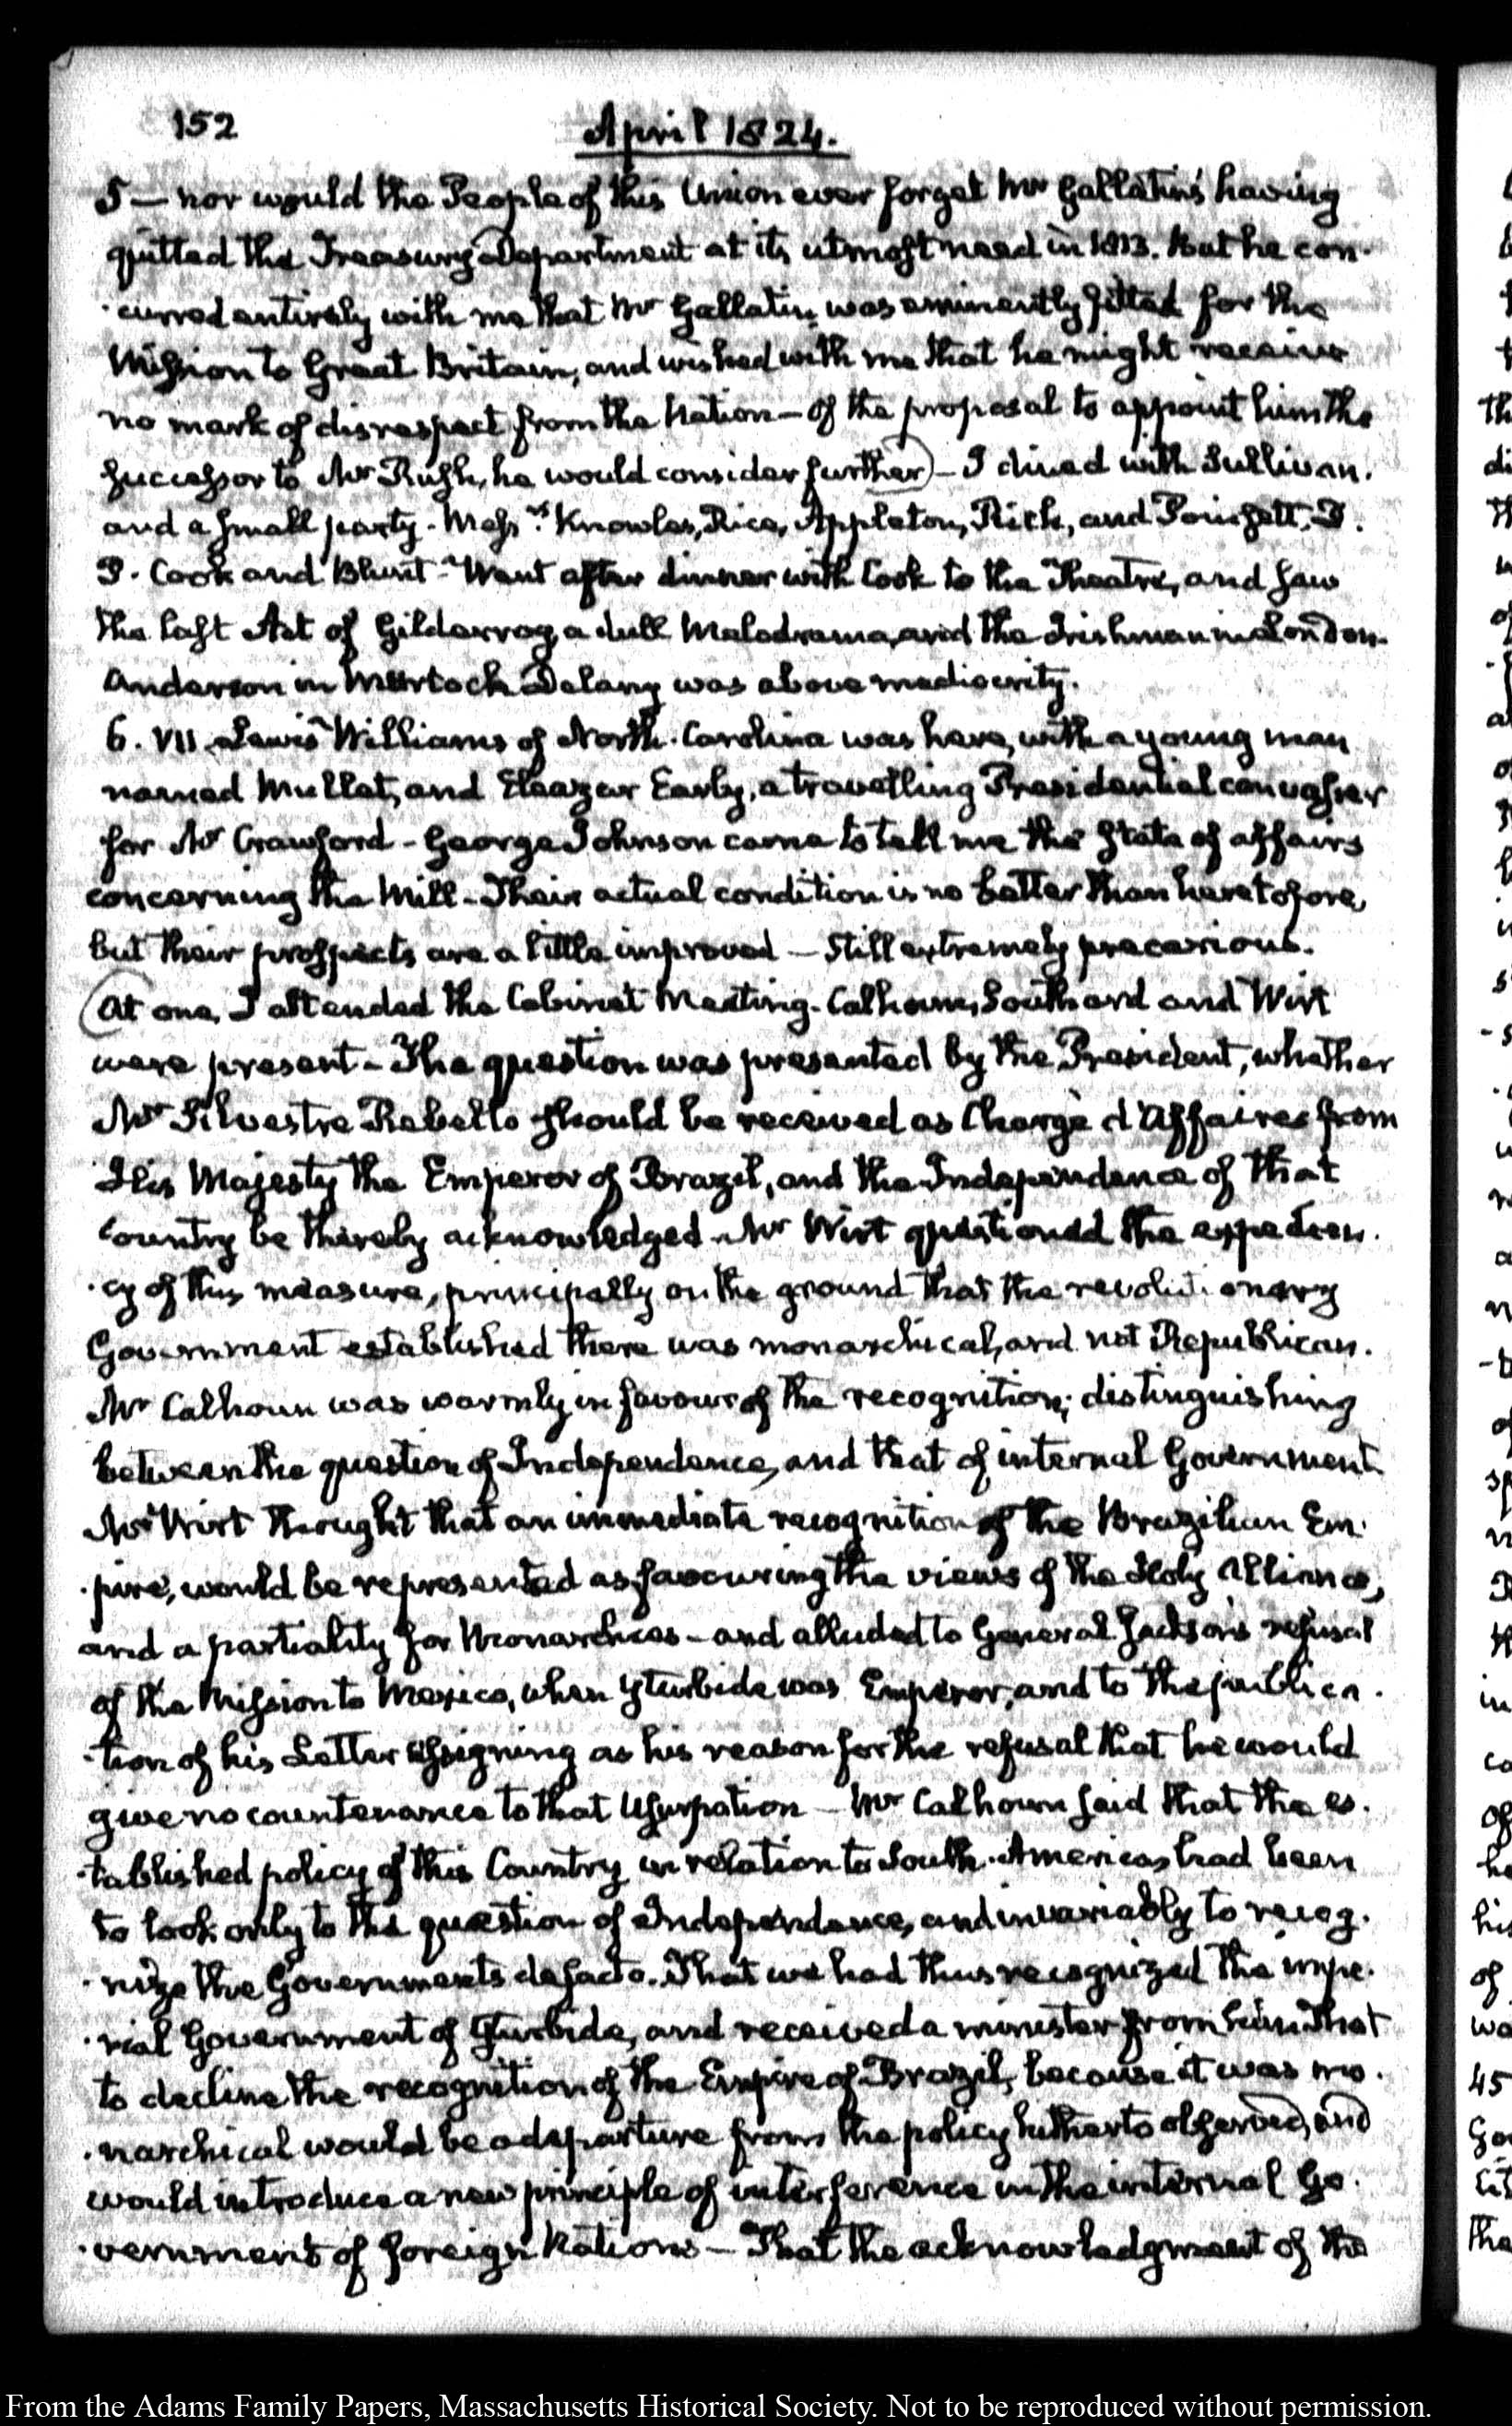 152
April 1824.
5 — nor would the People of this Union ever forget Mr Gallatin's having
quitted the Treasury Department at its utmost need in 1813. But he con-
-curred entirely with me that Mr Gallatin was eminently fitted for the
Mission to Great Britain, and wished with me that he might receive
no mark of disrespect from the Nation — of the proposal to appoint him the
successor to Mr Rush, he would consider further) — I dined with Sullivan.
and a small party. Messrs Knowles, Rice, Appleton, Rich, and Poinsett, D.
P. Cook and Blunt — Went after dinner with Cook to the Theatre, and saw
the last Act of Gilderroy, a dull Melodrama, and the Irishman in London.
Anderson in Murtoch Delany was above mediocrity.
6. VII. Lewis Williams of North-Carolina was here, with a young man
named Mullat, and Eleazer Early, a travelling Presidential canvasser
for Mr Crawford - George Johnson came to tell me the State of affairs
concerning the Mill - Their actual condition is no better than heretofore,
but their prospects are a little improved — still extremely precarious.
(At one, I attended the Cabinet Meeting. Calhoun, Southard and Wirt
were present - The question was presented by the President, whether
Mr Silvestre Rebello should be received as Chargé d'Affaires from
His Majesty the Emperor of Brazil, and the Independence of that
Country be thereby acknowledged - Mr Wirt questioned the expedien-
-cy of this measure, principally on the ground that the revolutionary
Government established there was monarchical, and not Republican.
Mr Calhoun was warmly in favour of the recognition; distinguishing
between the question of Independence, and that of internal Government
Mr Wirt thought that an immediate recognition of the Brazilian Em-
-pire, would be represented as favouring the views of the Holy Alliance,
and a partiality for Monarchies - and alluded to General Jackson's refusal
of the Mission to Mexico, when Yturbide was Emperor, and to the publica-
-tion of his Letter assigning as his reason for the refusal that he would
give no countenance to that Usurpation — Mr Calhoun said that the es-
-tablished policy of this Country in relation to South-America, had been
to look only to the question of Independence, and invariably to recog-
-nize the Governments de facto. That we had thus recognized the impe-
-rial Government of Yturbide, and received a minister from him. That
to decline the recognition of the Empire of Brazil, because it was mo-
-narchical would be a departure from the policy hitherto observed, and
would introduce a new principle of interference in the internal Go-
-vernment of foreign Nations — That the acknowledgment of the
From the Adams Family Papers, Massachusetts Historical Society. Not to be reproduced without permission.